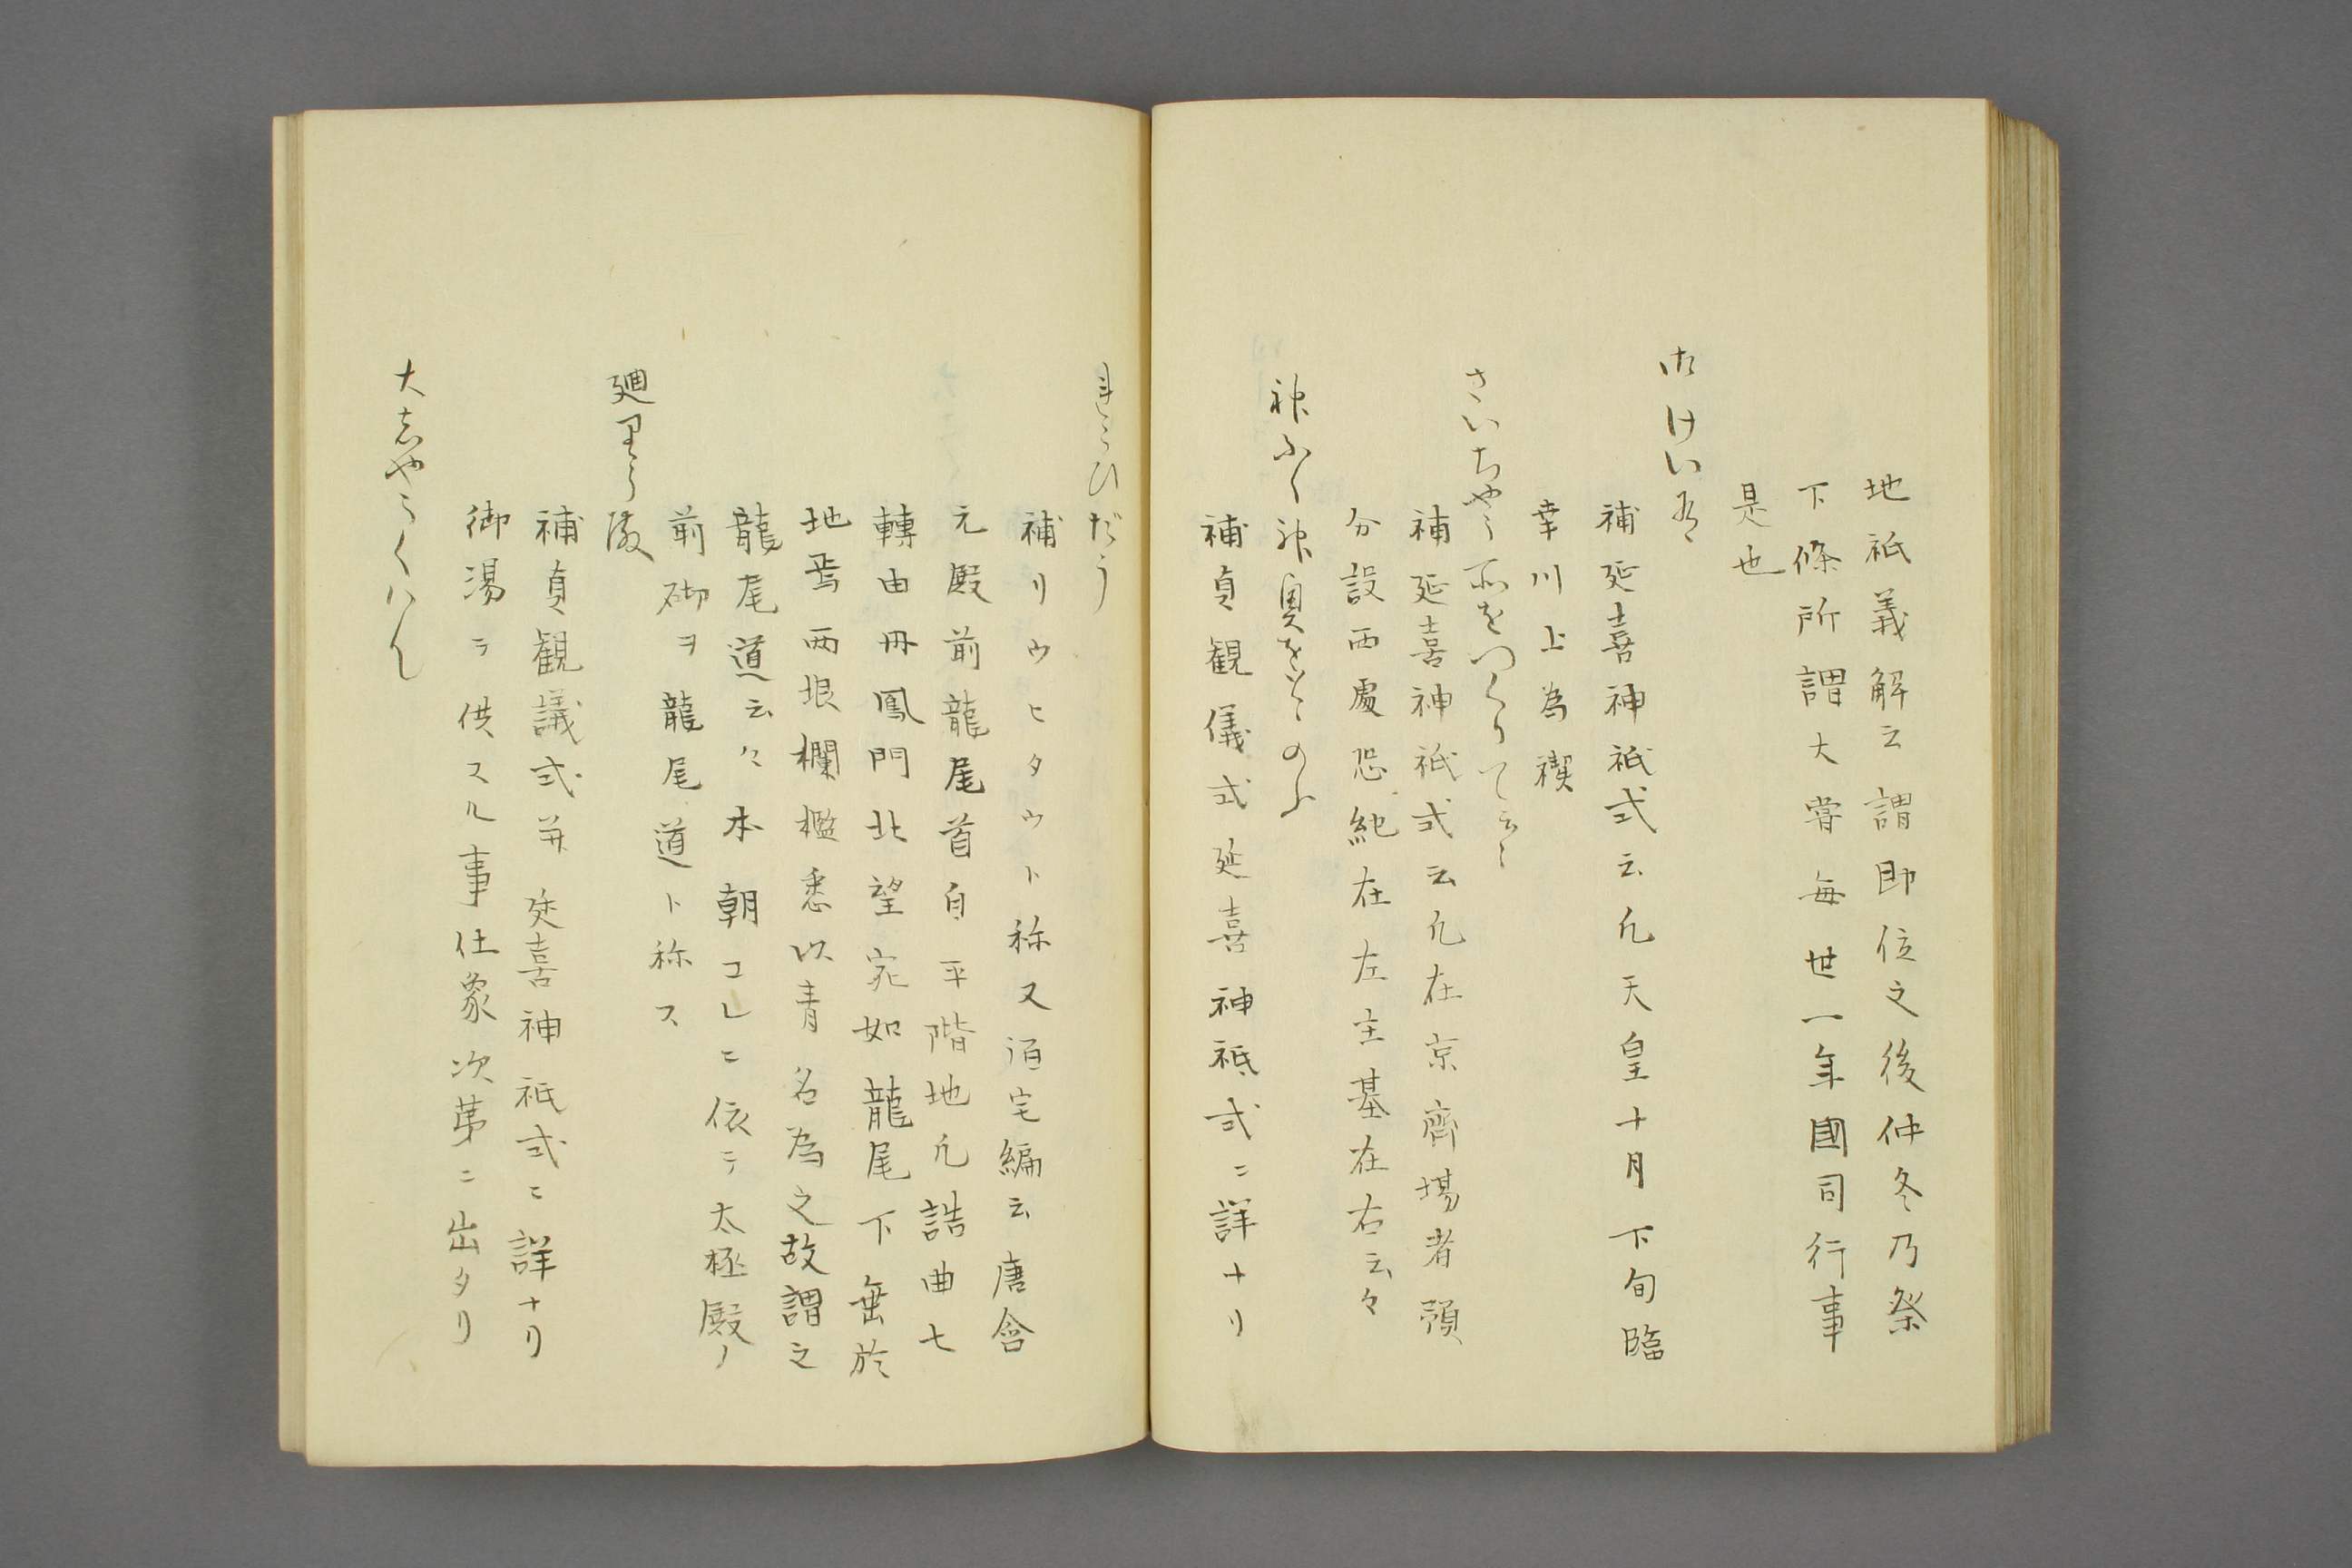 地祇義解云謂即位之後仲冬乃祭
下條所謂大嘗毎世一年國司行事
是也
御けい有
補延喜神祇式云凡天皇十月下旬臨
幸川上為禊
さいちやう所をつくりて云〻
補延喜神祇式云凡在京齊場者預
分設両處悠紀在左主基在右云々
神ふく神奥をとゝのふ
補貞観儀式延喜神祇式ニ詳ナリ
れうひだう
補リウヒタウト称又酒宅編云唐會
元殿前龍尾首自平階地凡詰曲七
轉由丹鳳門北望宛如龍尾下垂於
地焉両垠欄檻悉以青名為之故謂之
龍尾道云々本朝コレニ依テ太極殿ノ
前砌ヲ龍尾道ト称ス
廻里う殿
補貞観議式并延喜神祇式ニ詳ナリ
御湯ヲ供スル事仕象次第ニ出タリ
大志やうくハん